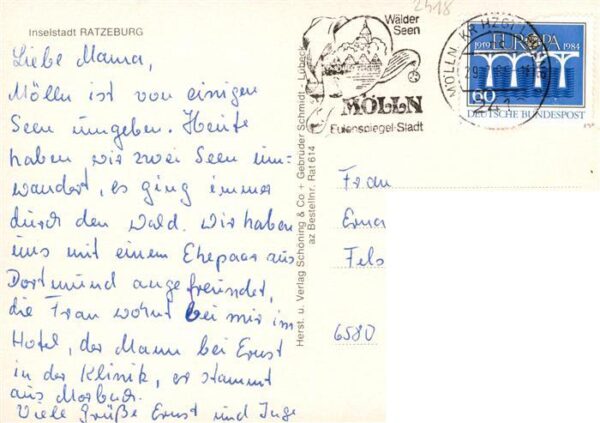 Inselstadt RATZEBURG
Liebe Mama,
Mölln ist von einigen
Seen umgeben. Heute
haben wir zwei Seen um-
wandert, es ging immer
durch den Wald. Wir haben
uns mit einem Ehepaar aus
Dortmund angefreundet,
die Frau wohnt bei mir im
Hotel, der Mann bei Ernst
in der Klinik, er stammt
aus Morbach.
Viele Grüße Ernst und Inge
Herst. u. Verlag Schöning & Co + Gebrüder Schmidt, Lübeck
az Bestellnr. Rat 614
2418
Wälder
Seen
MÖLLN
Eulenspiegel-Stadt
MÖLLN, KR HZGT
241
1919 EUROPA 1984
60
DEUTSCHE BUNDESPOST
Frau
Erna
Fels
6580